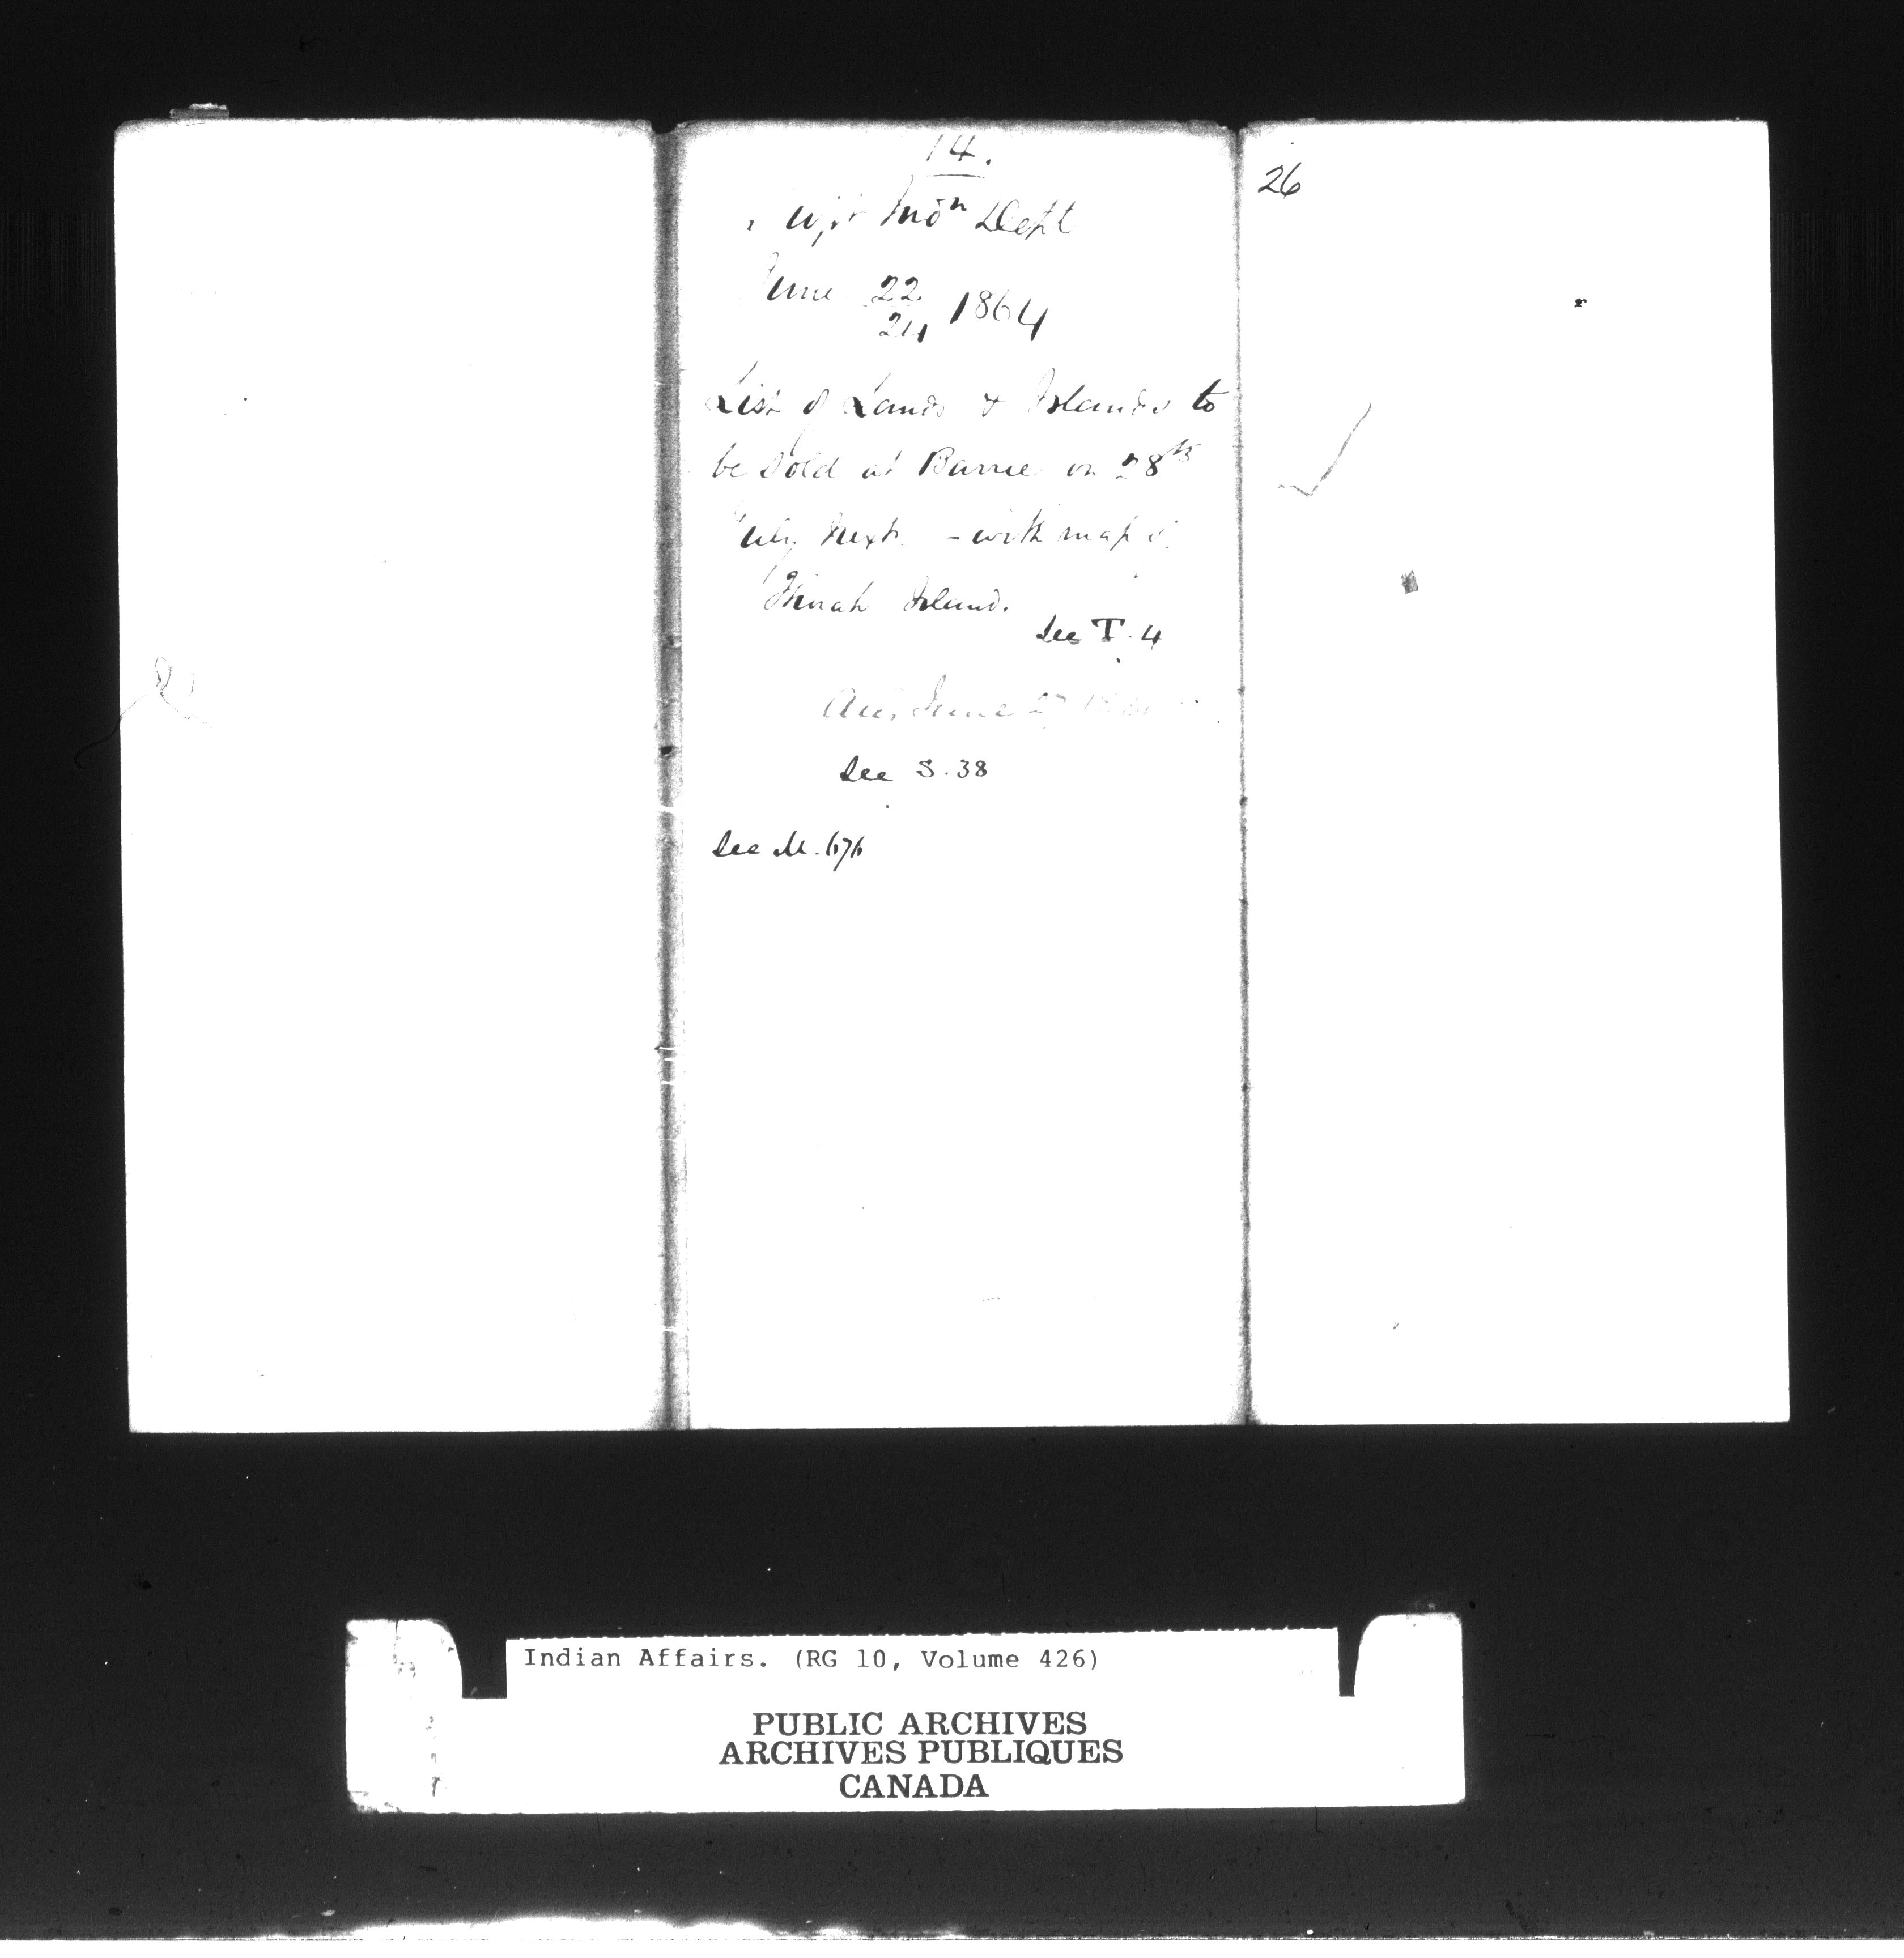 14.
Indn Dept
June 22/24 1864
List of Lands & Islands to
be Sold at Barrie on 28th
July next. - with map of
Thorah Island.
See T. 4
Ans, June 27
See S. 38
See M. 676
26
Indian Affairs. (RG 10, Volume 426)
PUBLIC ARCHIVES
ARCHIVES PUBLIQUES
CANADA